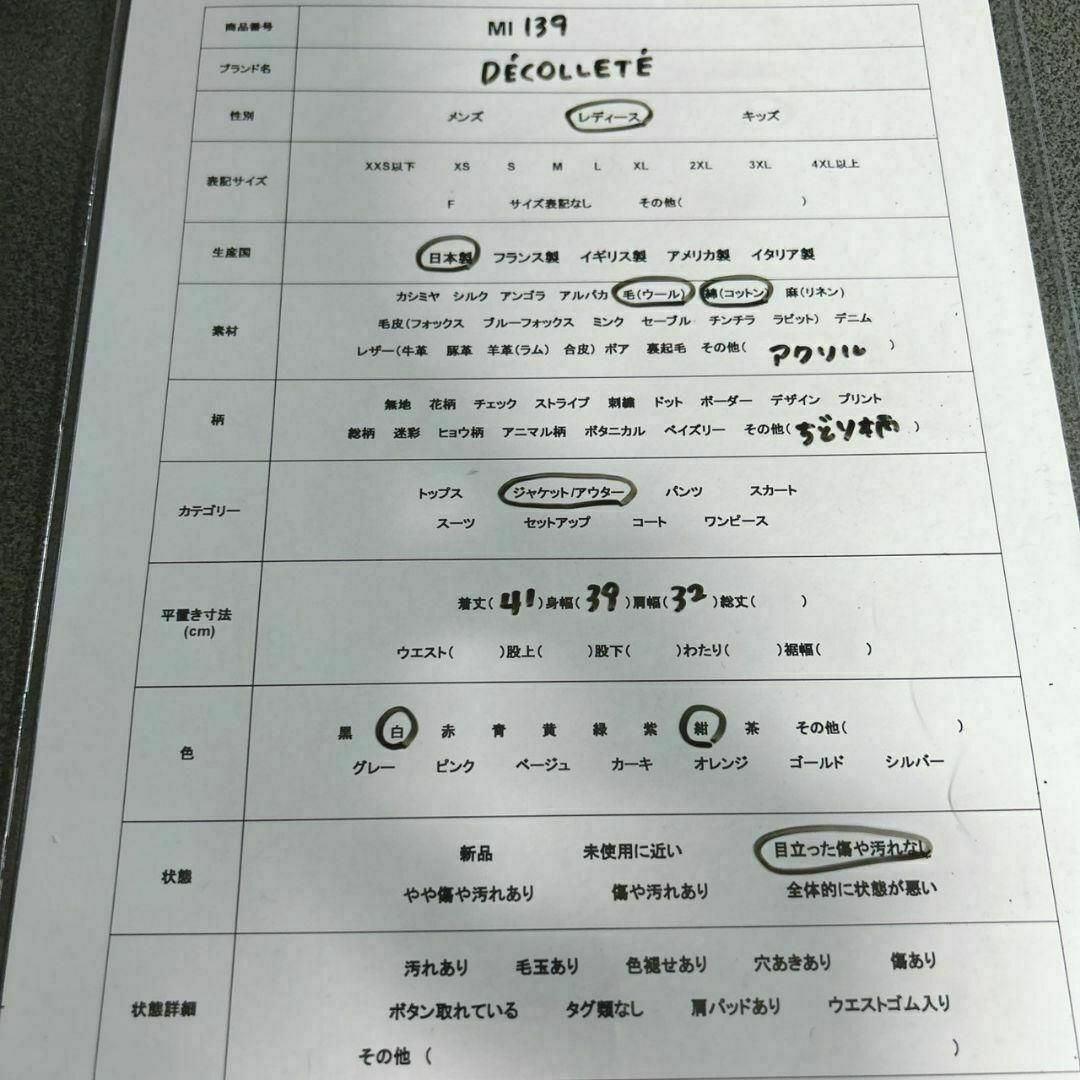 商品番号 MI 139
ブランド名 DÉCOLLETÉ
性別 メンズ レディース キッズ
表記サイズ XXS以下 XS S M L XL 2XL 3XL 4XL以上
F サイズ表記なし その他( )
生産国 日本製 フランス製 イギリス製 アメリカ製 イタリア製
素材 カシミヤ シルク アンゴラ アルパカ 毛(ウール) 綿(コットン) 麻(リネン)
毛皮(フォックス ブルーフォックス ミンク セーブル チンチラ ラビット) デニム
レザー(牛革 豚革 羊革(ラム) 合皮) ボア 裏起毛 その他( アクリル )
柄 無地 花柄 チェック ストライプ 刺繍 ドット ボーダー デザイン プリント
総柄 迷彩 ヒョウ柄 アニマル柄 ボタニカル ペイズリー その他( ちどり柄 )
カテゴリー トップス ジャケット/アウター パンツ スカート
スーツ セットアップ コート ワンピース
平置き寸法 (cm) 着丈( 41 )身幅( 39 )肩幅( 32 )総丈( )
ウエスト( )股上( )股下( )わたり( )裾幅( )
色 黒 白 赤 青 黄 緑 紫 紺 茶 その他( )
グレー ピンク ベージュ カーキ オレンジ ゴールド シルバー
状態 新品 未使用に近い 目立った傷や汚れなし
やや傷や汚れあり 傷や汚れあり 全体的に状態が悪い
状態詳細 汚れあり 毛玉あり 色褪せあり 穴あきあり 傷あり
ボタン取れている タグ類なし 肩パッドあり ウエストゴム入り
その他 ( )